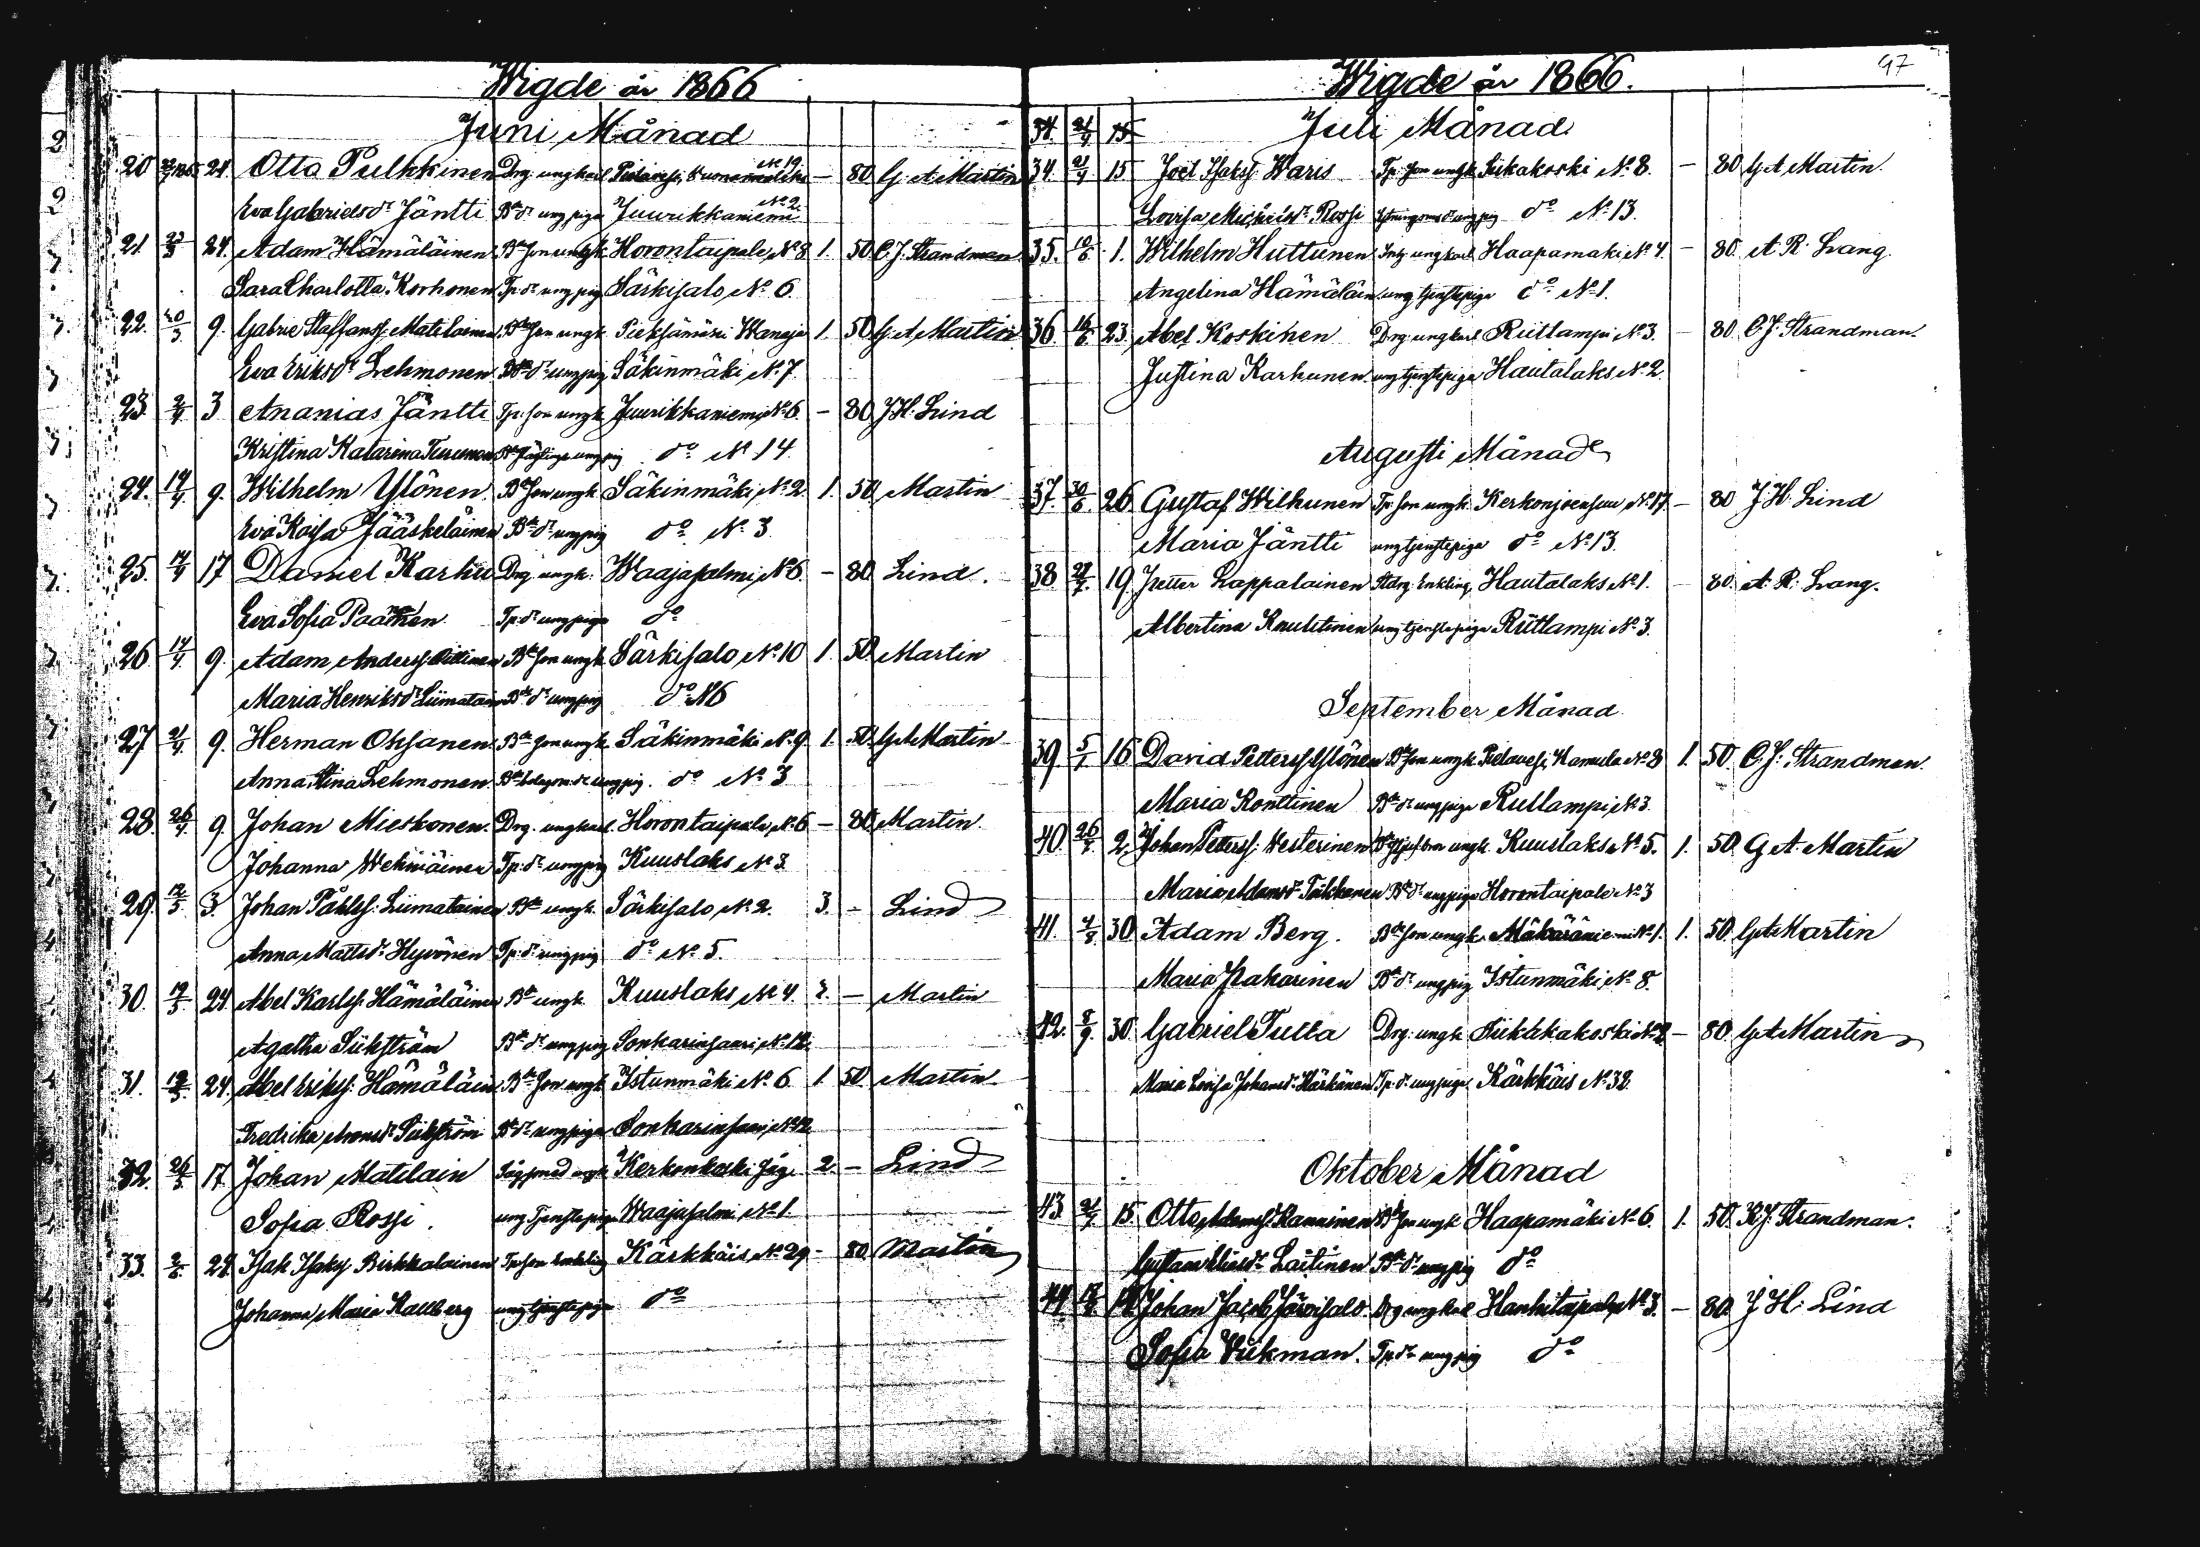 Wigde år 1866
Juni Månad
20 24 Otto Pulkkinen Drg. ungkarl Pielavesi, № 19 — 80 G. A. Martin
Eva Gabrielsdr Jäntti Bde dr ung piga Juurikkaniemi № 2
21 24 Adam Hämäläinen Bde son ungk Horontaipale № 8 1. 50 C. J. Strandman
Sara Charlotta Korhonen Tp. dr ung pig Särkisalo № 6
22 9 Gabriel Staffanss. Matilainen Bde son ungk Pieksämäki Wanaja 1 50 G. A. Martin
Eva Eriksdr Lehmonen Bde dr ung pig Säkinmäki № 7
23 2/4 3 Ananias Jäntti Tp. son ungk Juurikkaniemi № 6 — 80 J H. Lind
Kristina Katarina Turunen ung pig do № 14
24. 14/4 9. Wilhelm Ylönen Bde son ungk Säkinmäki № 2 1. 50 Martin
Eva Kaisa Jääskeläinen Bde dr ung pig do № 3
25. 14/4 17 Daniel Karhu Drg. ungk. Waajasalmi № 6 — 80 Lind.
Eva Sofia Paananen Tp. dr ung piga do
26 14/4 9. Adam Anderss. Bde son ungk Särkisalo № 10 1. 50 Martin
Maria Henriksdr Liimatain Bde dr ung pig do № 6
27 21/4 9. Herman Oksanen Bde son ungk Säkinmäki № 9 1. 50 G A Martin
Anna Stina Lehmonen ung pig. do № 3
28. 26/4 9. Johan Mieskonen Drg. ungkarl Horontaipale № 6 — 80 Martin
Johanna Wehmäinen Tp. dr ung pig Kuuslaks № 3
29. 12/5 3. Johan Påhlss. Liimatainen Bde ungk. Särkisalo № 2. 3. — Lind
Anna Mattsdr Hyvönen Tp. dr ung pig do № 5.
30. 12/5 24 Abel Karlss. Hämäläinen Bde ungk Kuuslaks № 4 3. — Martin
Agatha Siikström Bde dr ung pig Sonkarinsaari № 12
31. 12/5 24. Abel Erikss. Hämäläin Bde son ungk Istunmäki № 6 1. 50 Martin
Fredrika Siikström Bde dr ung piga Sonkarinsaari № 12
32. 26/5 17 Johan Matilain ungk Kerkonkoski Såg. 2. — Lind
Sofia Rossi ung tjenstepiga Waajasalmi № 1
33. 2/6 24. Isak Isakss Birkkalainen Tp. son enkling Kärkkäis № 29 — 80 Martin
Johanna Maria Kallberg ung tjenstepiga do
Wigde år 1866.
97
34. 21/4 15 Juli Månad
34. 21/4 15 Joel Isakss Waris Tp. son ungk Siikakoski № 8. — 80 G A Martin.
Lovisa Michelsdr Rossi ung pig do № 13
35. 10/6 1. Wilhelm Huttunen Inh. ungkarl Haapamäki № 4 — 80 A. R. Lvang.
Angelina Hämäläin ung tjenstepiga do № 1.
36 16/6 23 Abel Koskinen Drg. ungkarl Riitlampi № 3. — 80 C. J. Strandman.
Justina Karhunen ung tjenstepiga Hautalaks № 2
Augusti Månad
37. 30/6 26 Gustaf Wilhunen Tp. son ungk. Kerkonjoensuu № 17 — 80 J H. Lind
Maria Jäntti ung tjenstepiga do № 13.
38. 21/7 19. Petter Lappalainen Enkling Hautalaks № 1. — 80. A. R. Lvang.
Albertina Kauletinen ung tjenstepiga Riitlampi № 3.
September Månad
39. 5/7 16 David Petterss Ylönen Bde son ungk Pielavesi, Kamula № 8 1. 50 C. J. Strandman.
Maria Ronttinen Bde dr ung piga Rutlampi № 3.
40 26/7 2. Johan Petterss. Westerinen ungk. Kuuslaks № 5. 1. 50. G A. Martin
Maria Adamsdr Tiikkanen Bde dr ung piga Horontaipale № 3
41. 4/8 30. Adam Berg. Bde son ungk. Mäkäräniemi № 1. 1. 50 G A Martin
Maria Pakarinen Bde dr ung pig Istunmäki № 8.
42. 8/9 30. Gabriel Tutta Drg. ungk Siikakoski № 2 — 80 G A Martin
Maria Lovisa Johansdr Härkönen Tp. dr ung piga Kärkkäis № 32.
Oktober Månad
43 21/7 15. Otto Adamss. Kauninen Bde son ungk Haapamäki № 6 1. 50. K J. Strandman.
Gustava Laitinen Bde dr ung pig do
44 14 Johan Jacob Järvisalo Drg ungkarl Hankitaipale № 3. — 80. J H. Lind
Sofia Wikman. Tp. dr ung pig do